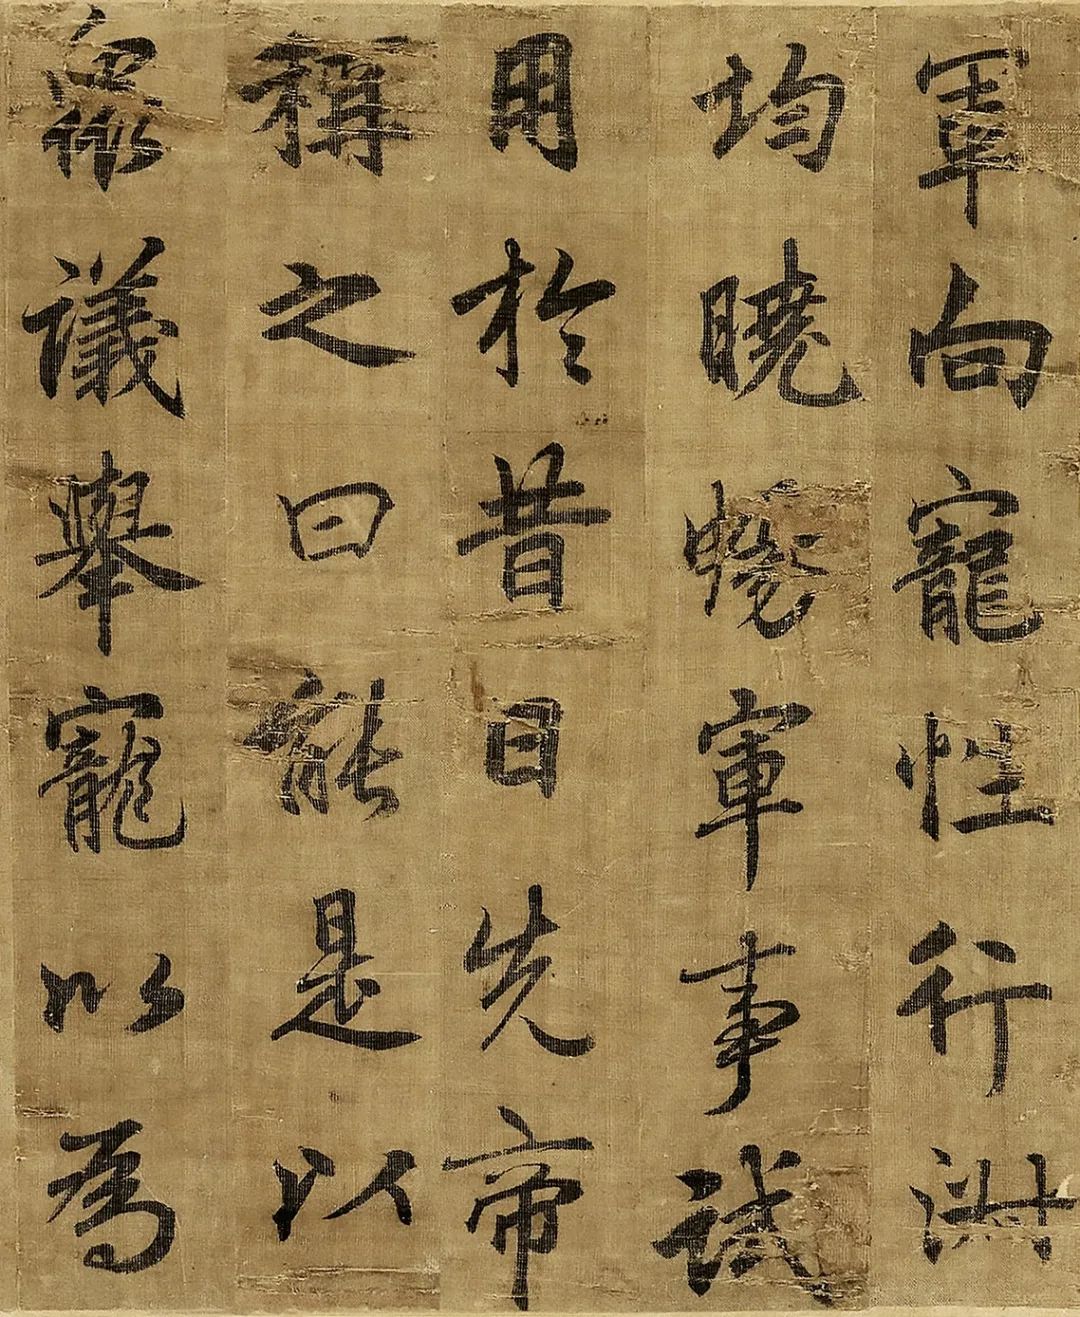 軍向寵性行淑
均曉暢軍事試
用於昔日先帝
稱之曰能是以
衆議舉寵以為